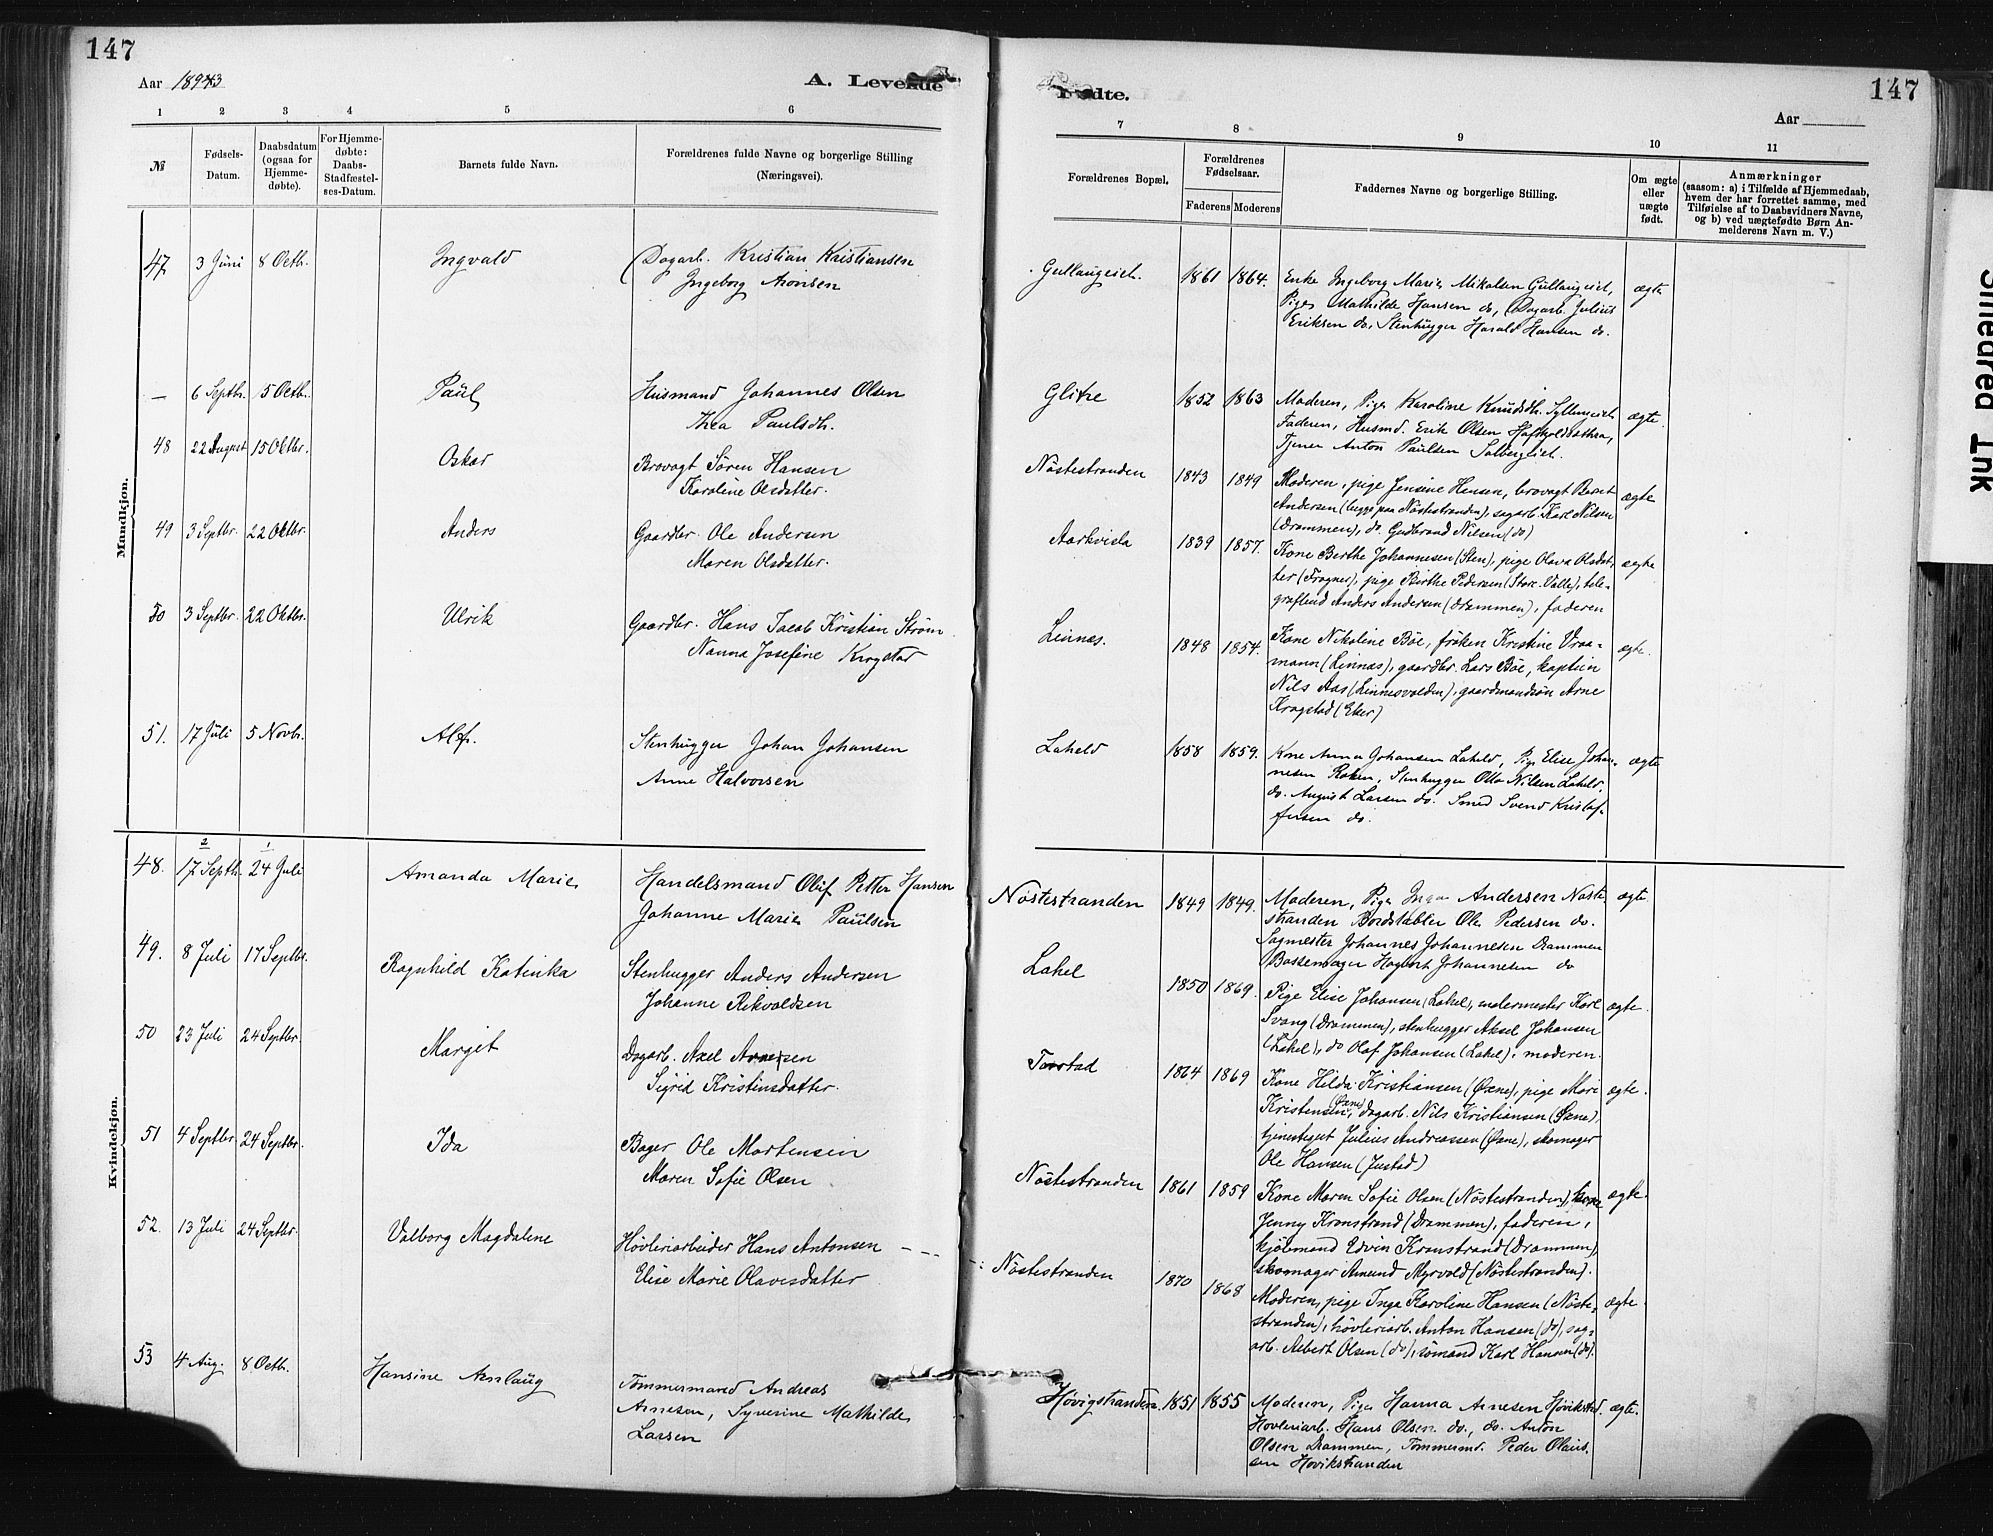 147
147
Aar 1893
A. Levende
Fødte.
Aar
1 2 3 4 5 6
7 8 9 10 11
№
Fødsels-
Datum.
Daabsdatum
(ogsaa for
Hjemme-
døbte).
For Hjemme-
døbte:
Daabs-
Stadfæstel-
ses-Datum.
Barnets fulde Navn.
Forældrenes fulde Navne og borgerlige Stilling
(Næringsvei).
Forældrenes Bopæl.
Forældrenes
Fødselsaar.
Faderens Moderens
Faddernes Navne og borgerlige Stilling.
Om ægte
eller
uægte
født.
Anmærkninger
(saasom: a) i Tilfælde af Hjemmedaab,
hvem der har forrettet samme, med
Tilføielse af to Daabsvidners Navne,
og b) ved uægtefødte Børn An-
melderens Navn m. V.)
Mandkjøn.
47 3 Juni 8 Octb. Ingvald Dagarb. Kristian Kristiansen
Ingeborg Aronsen
Gullaugeiet. 1861 1864. Enke Ingeborg Marie Mikalsen Gullaugeiet, ægte
Pige Mathilde Hansen do, Dagarb. Julius
Eriksen do, Stenhugger Harald Hansen do.
— 6 Septbr. 5 Octb. Paul Husmand Johannes Olsen
Thea Paulsdh.
Glitre 1852 1863 Moderen, Pige Karoline Knudsdh. ægte
Faderen, Husmd. Erik Olsen
Tjener Anton Paulsen Solbergeiet.
48 22 August 15 Oktbr. Oskar Brovagt Søren Hansen
Karoline Olsdatter.
Nöstestranden 1843 1849 Moderen, pige Jensine Hansen, brovagt Bernt ægte
Andersen (begge paa Nöstestranden), sagarb. Karl Nilsen
(Drammen), do Gudbrand Nilsen (do)
49 3 Septbr. 22 Oktbr. Anders Gaardbr. Ole Andersen
Maren Olsdatter.
Aarkvisla 1839 1857. Kone Berthe Johannesen (Sten), pige Olava Olsdat- ægte
ter (Frogner), pige Birthe Pedersen (Store-Valle), tele-
grafbud Anders Andersen (Drammen), faderen
50 3 Septbr. 22 Oktbr. Ulrik Gaardbr. Hans Jacob Kristian Strøm
Nanna Josefine Krogstad
Linnæs. 1848 1854. Kone Nikoline Böe, fröken Kristine Vraa- ægte.
mann (Linnæs), gaardbr. Lars Böe, kaptein
Nils Aas (Linnesvolden), gaardmandsön Arne
Krogstad (Eker)
51. 17 Juli 5 Novb. Alf. Stenhugger Johan Johansen
Anne Halvorsen
Laheld 1858 1859. Kone Anna Johansen Laheld, Pige Elise Johan- ægte
nesen Roken, Stenhugger Otto Nilsen Laheld,
do. August Larsen do. Smed Svend Kristof-
fersen do.
Kvindekjøn.
2 1
48. 17 Septb. 24 Juli Amanda Marie Handelsmand Oluf Petter Hansen
Johanne Marie Paulsen
Nöstestranden 1849 1849. Moderen, Pige Inga Andersen Nöste ægte.
stranden Bordstabler Ole Pedersen do.
Sagmester Johannes Johannesen Drammen
Bassemager Hagbart Johannesen do
49. 8 Juli 17 Septbr. Ragnhild Katinka Stenhugger Anders Andersen
Johanne Rikvaldsen
Lahel 1850 1869. Pige Elise Johansen (Lahel), malermester Karl ægte.
Svang (Drammen), stenhugger Aksel Johansen
(Lahel), do Olaf Johansen (Lahel), moderen.
50 23 Juli 24 Septbr. Margit Dagarb. Axel Arnesen
Sigrid Kristinsdatter.
Torstad 1864 1869 Kone Hilda Kristiansen (Øxne), pige Mari ægte.
Kristensen (Øxne), dagarb. Nils Kristiansen (Øxne),
tjenestegut Julius Andreassen (Øxne), skomager
Ole Hansen (Justad)
51 4 Septbr. 24 Septbr. Ida Bager Ole Mortensen
Maren Sofie Olsen
Nöstestranden 1861 1859 Kone Maren Sofie Olsen (Nöstestranden), kone ægte.
Jenny Kronstrand (Drammen), faderen,
kjölemand Edvin Kronstrand (Drammen),
skomager Amund Myrvold (Nöstestranden).
52. 13 Juli 24 Septbr. Valborg Magdalene Høvleriarbeider Hans Antonsen
Elise Marie Olavesdatter
Nöstestranden 1870 1868 Moderen, pige Inga Karoline Hansen (Nöste- ægte.
stranden), hövleriarb. Anton Hansen (do), sag-
arb. Albert Olsen (do), sömand Karl Hansen (do).
53 4 Aug. 8 Octb. Hansine Aslaug Tømmermand Andreas
Arnesen, Syverine Mathilde
Larsen
Høvigstranden. 1851 1855 Moderen, Pige Hanna Arnesen Høvikstrd. ægte.
Høvleriarb. Hans Olsen do., do. Anton
Olsen Drammen, Tømmermd. Peder Olaus-
sen Høvikstranden
Smeared Ink